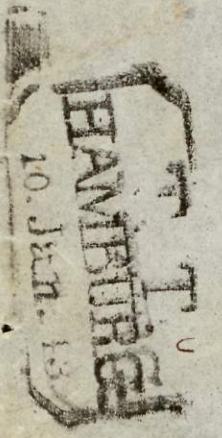 T T
HAMBURG
10. Jan. 13